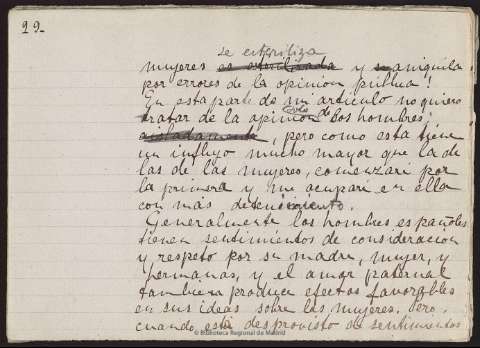 29-
se esteriliza
mujeres es esterilizada y se aniquila
por errores de la opinion publica!
En esta parte de mi articulo no quiero
solo
tratar de la opinion de los hombres,
aisladamente, pero como esta tiene
un influjo mucho mayor que la de
las de las mujeres, comenzaré por
la primera y me ocuparé en ella
con más detenimiento.
Generalmente los hombres españoles
tienen sentimientos de consideracion
y respeto por su madre, mujer, y
hermanas, y el amor paternal
tambien produce efectos favorables
en sus ideas sobre las mujeres. Pero
cuando está desprovisto de sentimientos
© Biblioteca Regional de Madrid